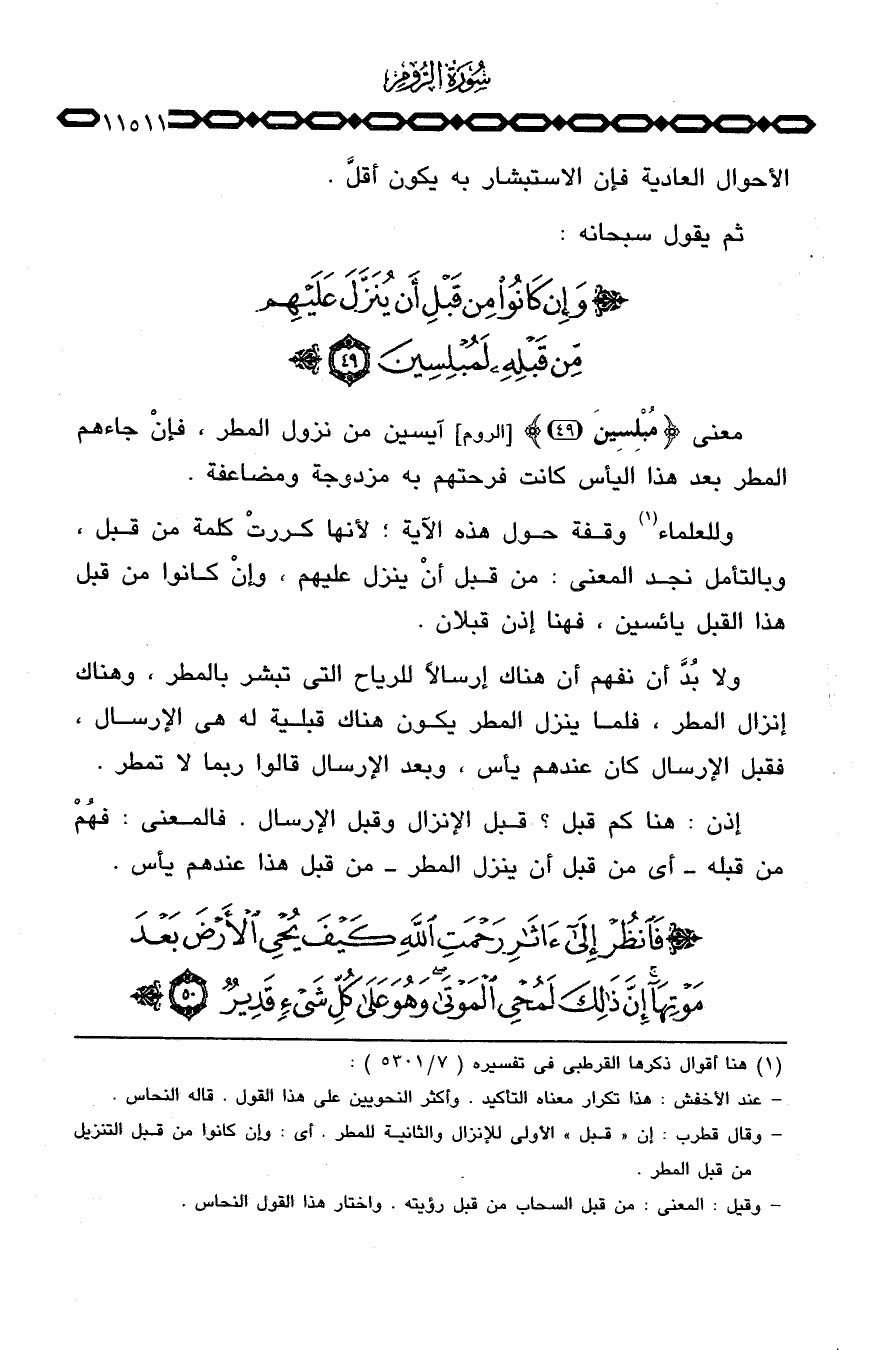 سُورَةُ الرُّومِ
١١٥١١
الأحوال العادية فإن الاستبشار به يكون أقلَّ .
ثم يقول سبحانه :
﴿ وَإِن كَانُوا۟ مِن قَبْلِ أَن يُنَزَّلَ عَلَيْهِم
مِّن قَبْلِهِۦ لَمُبْلِسِينَ ٤٩ ﴾
معنى ﴿ مُبْلِسِينَ (٤٩) ﴾ [الروم] آيسين من نزول المطر ، فإنْ جاءهم
المطر بعد هذا اليأس كانت فرحتهم به مزدوجة ومضاعفة .
وللعلماء(١) وقفة حول هذه الآية ؛ لأنها كررتْ كلمة من قبل ،
وبالتأمل نجد المعنى : من قبل أنْ ينزل عليهم ، وإنْ كانوا من قبل
هذا القبل يائسين ، فهنا إذن قبلان .
ولا بُدَّ أن نفهم أن هناك إرسالاً للرياح التى تبشر بالمطر ، وهناك
إنزال المطر ، فلما ينزل المطر يكون هناك قبلية له هى الإرسال ،
فقبل الإرسال كان عندهم يأس ، وبعد الإرسال قالوا ربما لا تمطر .
إذن : هنا كم قبل ؟ قبل الإنزال وقبل الإرسال . فالمعنى : فهُمْ
من قبله – أى من قبل أن ينزل المطر – من قبل هذا عندهم يأس .
﴿ فَٱنظُرْ إِلَىٰٓ ءَاثَٰرِ رَحْمَتِ ٱللَّهِ كَيْفَ يُحْىِ ٱلْأَرْضَ بَعْدَ
مَوْتِهَآ ۚ إِنَّ ذَٰلِكَ لَمُحْىِ ٱلْمَوْتَىٰ ۖ وَهُوَ عَلَىٰ كُلِّ شَىْءٍ قَدِيرٌ ٥٠ ﴾
(١) هنا أقوال ذكرها القرطبى فى تفسيره ( ٥٣٠١/٧ ) :
– عند الأخفش : هذا تكرار معناه التأكيد . وأكثر النحويين على هذا القول . قاله النحاس .
– وقال قطرب : إن « قبل » الأولى للإنزال والثانية للمطر . أى : وإن كانوا من قبل التنزيل
من قبل المطر .
– وقيل : المعنى : من قبل السحاب من قبل رؤيته . واختار هذا القول النحاس .